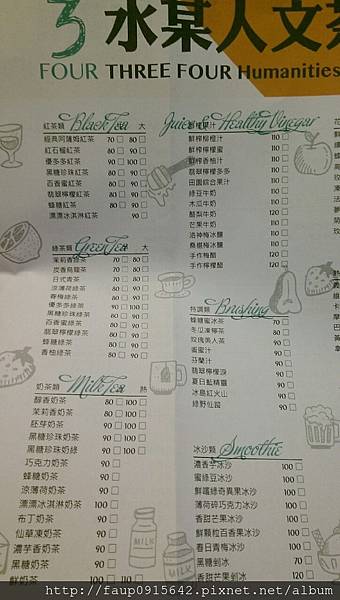 3 水某人文茶
FOUR THREE FOUR Humanities
紅茶類 Black Tea 大
經典阿薩姆紅茶 70 □ 80 □
紅石榴紅茶 80 □ 90 □
優多多紅茶 90 □ 100 □
黑糖珍珠紅茶 80 □ 90 □
百香蜜紅茶 80 □ 90 □
翡翠檸檬紅茶 80 □ 90 □
蜂糖紅茶 80 □ 90 □
漂漂冰淇淋紅茶 90 □
綠茶類 Green Tea 大
茉莉香綠茶 70 □ 80 □
炭香烏龍茶 70 □ 80 □
日式青茶 70 □ 80 □
涼薄荷綠茶 80 □ 90 □
春梅綠茶 80 □ 90 □
優多多綠茶 90 □ 100 □
黑糖珍珠綠茶 80 □ 90 □
百香蜜綠茶 80 □ 90 □
翡翠檸檬綠茶 80 □ 90 □
蜂糖綠茶 80 □ 90 □
青柚綠茶 80 □ 90 □
奶茶類 Milk Tea 熱
醇香奶茶 80 □ 100 □
茉莉香奶茶 80 □ 100 □
胚芽奶茶 90 □ 100 □
黑糖珍珠奶茶 90 □ 100 □
黑糖珍珠奶綠 90 □ 100 □
巧克力奶茶 90 □
蜂糖奶茶 90 □
涼薄荷奶茶 90 □
漂漂冰淇淋奶茶 100 □
布丁奶茶 90 □
仙草凍奶茶 90 □
濃芋香奶茶 90 □
鮮奶茶 100 □ 110 □
Juice & Healthy Vinegar
鮮榨柳橙汁 110 □
鮮榨檸檬汁 110 □
鮮榨檸檬蜜 110 □
鮮榨香柚汁 110 □
翡翠檸檬多多 110 □
田園綜合果汁 110 □
綠豆牛奶 110 □
木瓜牛奶 110 □
酪梨牛奶 120 □
芒果牛奶 110 □
洛神梅冰釀 110 □
桑椹梅冰釀 110 □
手作梅醋 120 □
手作檸檬醋 120 □
特調類 Brushing
蜂糖蜜冰茶 80 □
冬瓜凍檸茶 80 □
玫瑰美人茶 90 □
蜜蜜汁 90 □
芬蘭汁 90 □
翡翠檸檬淚 90 □
夏日藍精靈 90 □
冰島紅火山 90 □
綠野仙蹤 90 □
冰沙類 Smoothie
濃香芋冰沙 100 □
蜜綠豆冰沙 100 □
鮮暱綠奇異果冰沙 100 □
薄荷碎巧克力冰沙 100 □
香甜芒果冰沙 100 □
鮮顆粒百香果冰沙 100 □
春日青梅冰沙 100 □
黑糖剉冰 70 □
香甜芒果剉冰 120 □
http://faup0915642.pixnet.net/album